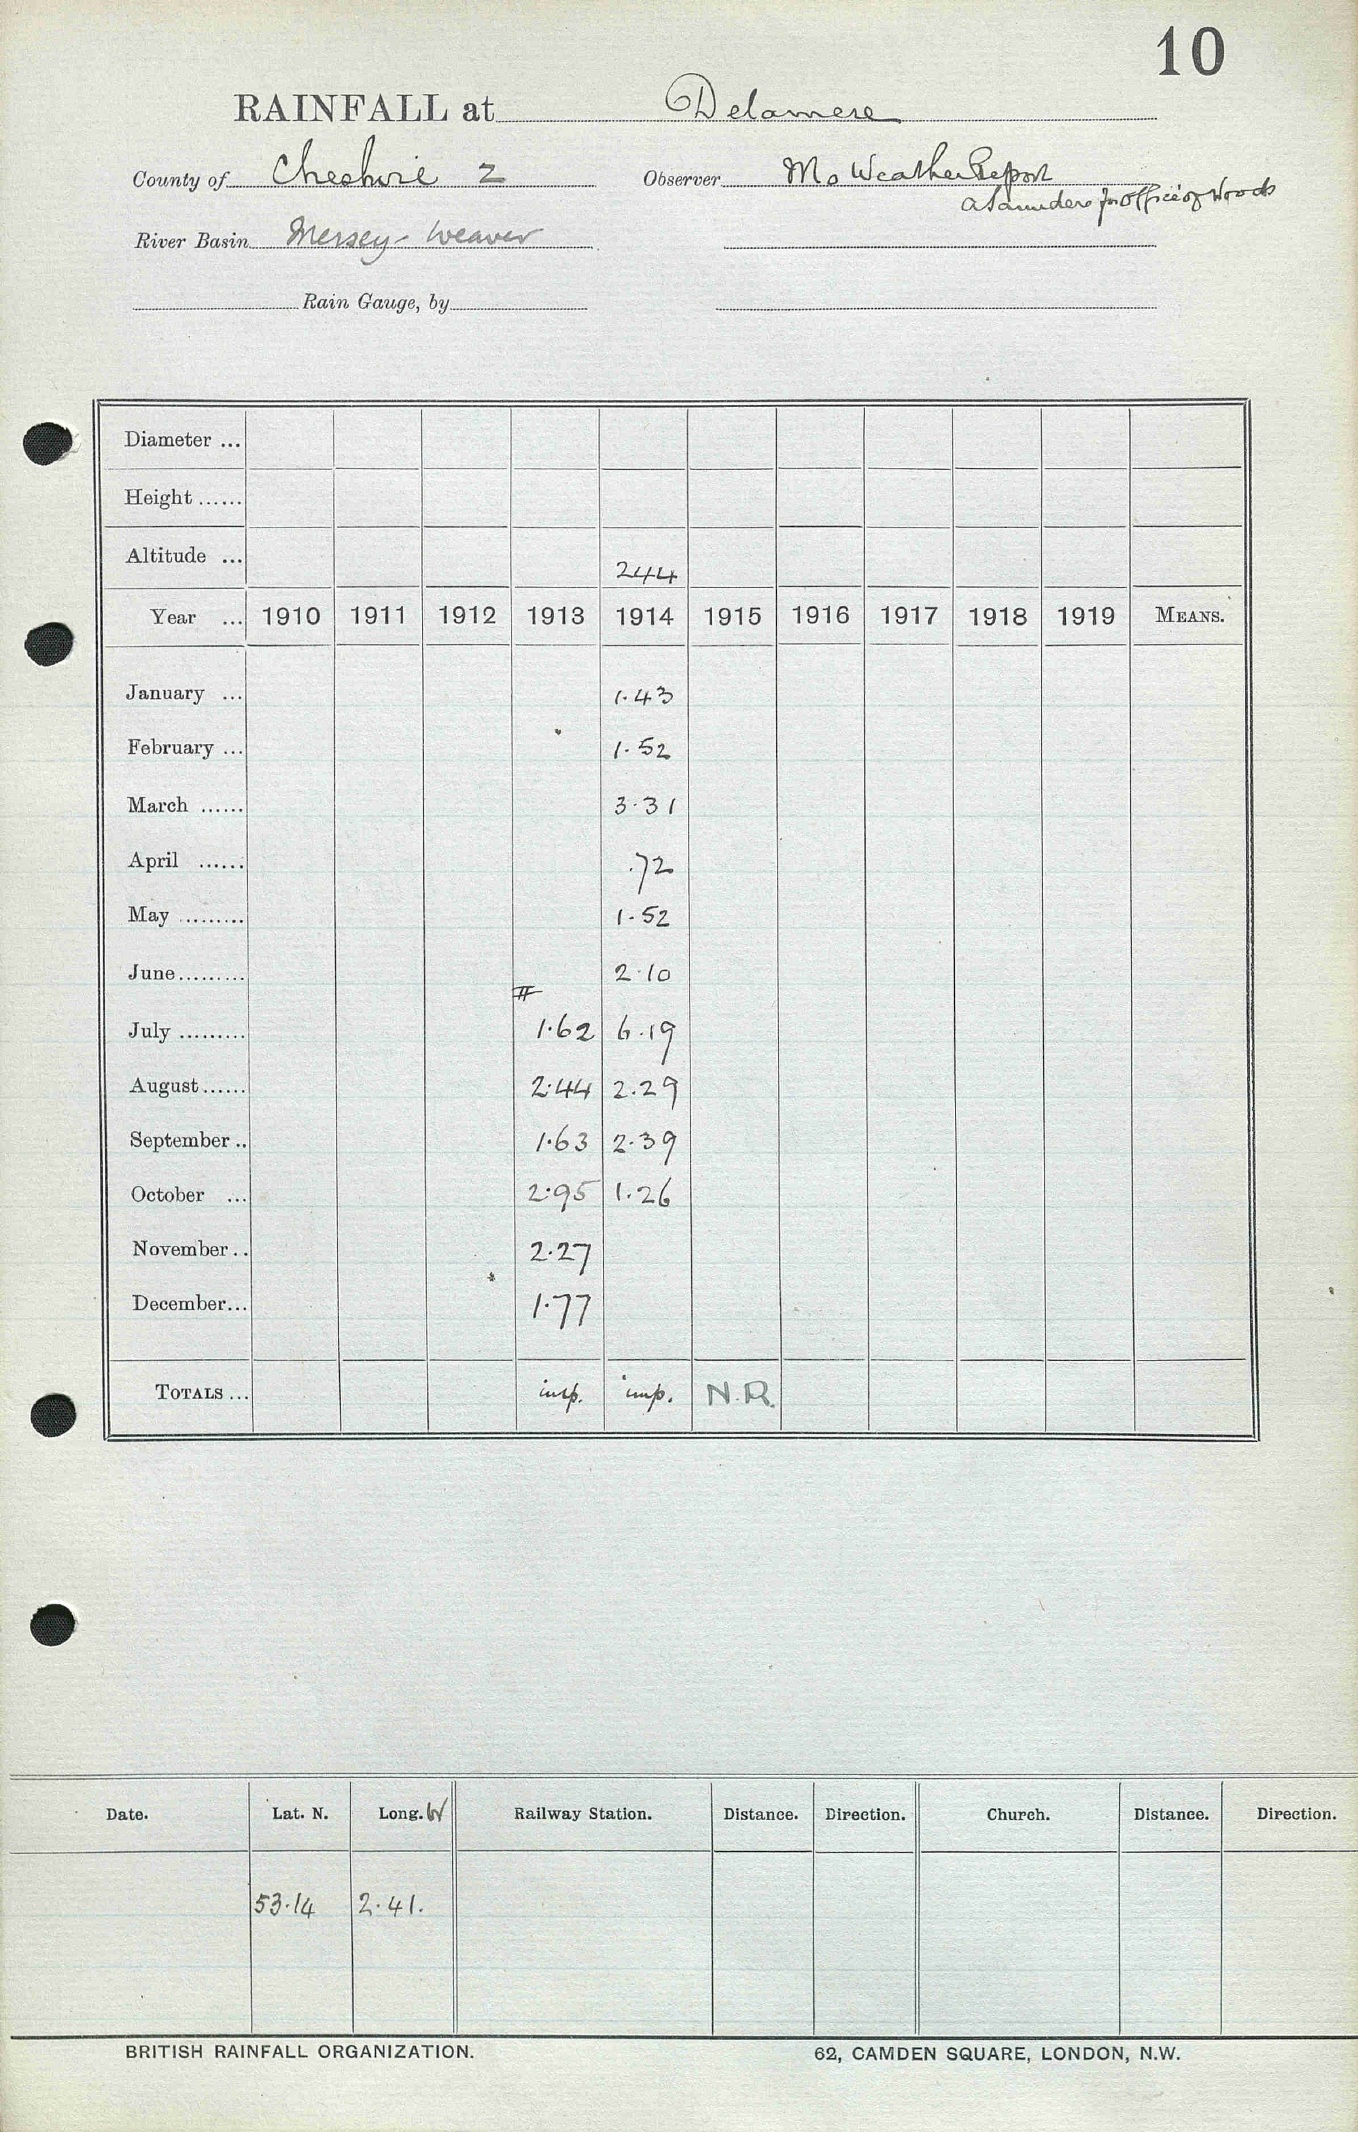 10
RAINFALL at Delamere
County of Cheshire 2 Observer Mo Weather Report
A Saunders for Office of Woods
River Basin Mersey-Weaver
Rain Gauge, by
Diameter ...
Height ......
Altitude ... 244
Year ... 1910 1911 1912 1913 1914 1915 1916 1917 1918 1919 MEANS.
January ... 1.43
February ... 1.52
March ...... 3.31
April ...... .72
May ......... 1.52
June......... 2.10
#
July ......... 1.62 6.19
August...... 2.44 2.29
September .. 1.63 2.39
October ... 2.95 1.26
November .. 2.27
December... 1.77
TOTALS ... imp. imp. N.R.
Date. Lat. N. Long. W Railway Station. Distance. Direction. Church. Distance. Direction.
53.14 2.41.
BRITISH RAINFALL ORGANIZATION. 62, CAMDEN SQUARE, LONDON, N.W.